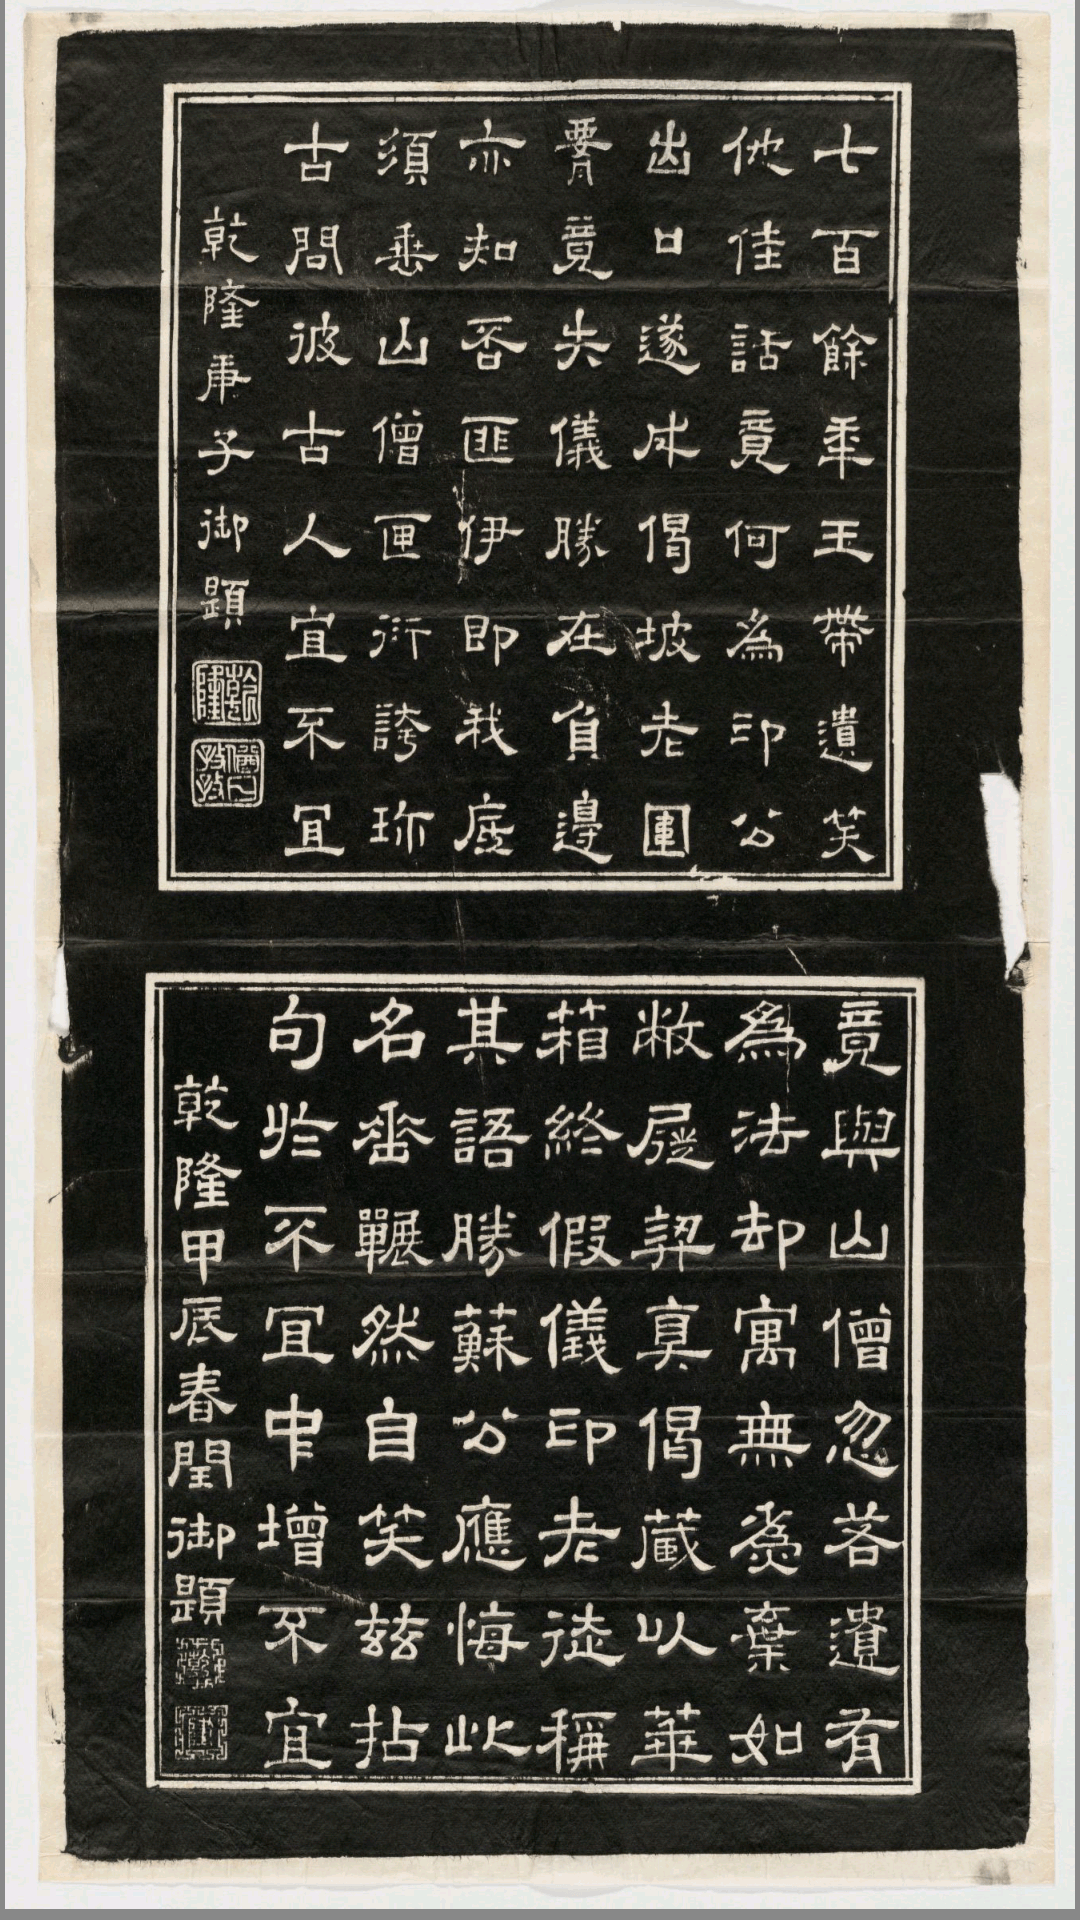 七百餘年玉帶遺笑
他佳話竟何為印公
出口遂成偈坡老圍
腰竟失儀勝在負邊
亦知否匪伊即我底
須垂山僧匣衍誇珎
古問彼古人宜不宜
乾隆庚子御題
乾隆
猶日孜孜
竟與山僧忽若遺有
為法却寓無為棄如
敝屣契真偈藏以華
箱終假儀印老徒稱
其語勝蘇公應悔此
名垂囅然自笑茲拈
句於不宜中增不宜
乾隆甲辰春閏御題